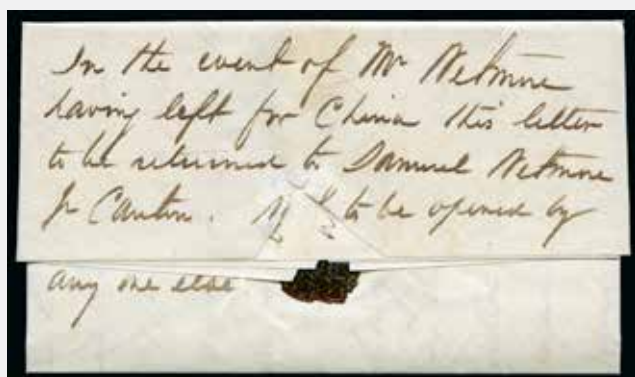 In the event of Mr Wetmore
having left for China this letter
to be returned to Samuel Wetmore
Jr Canton. to be opened by
any one else